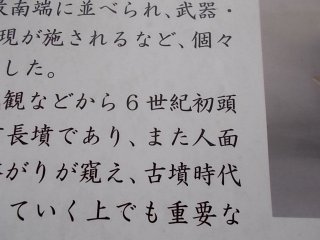 南端に並べられ、武器・
現が施されるなど、個々
した。
観などから６世紀初頭
長墳であり、また人面
がりが窺え、古墳時代
ていく上でも重要な